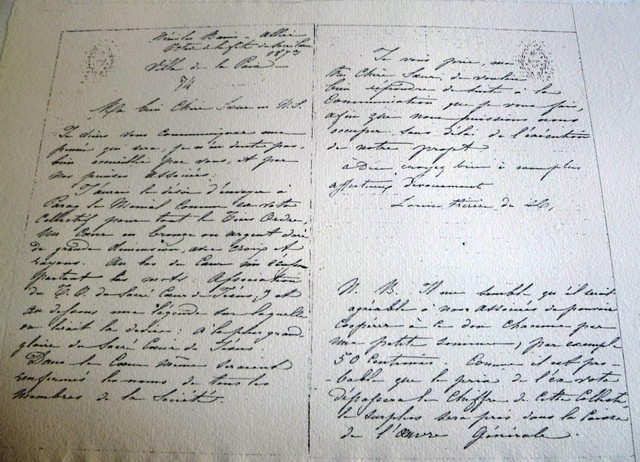 Octave de la fête du Sacré Cœur
1873
Ville de la
74
Ma bien Chère Sœur en N.S.
Je viens vous communiquer une
pensée qui sera, je n'en doute pas,
bien accueillie par vous, et par
nos pieuses associées.
J'aurais le désir d'envoyer à
Paray le Monial comme ex-voto
collectif pour tout le Tiers Ordre,
un Cœur en bronze ou argent doré
de grande dimension, avec Croix et
rayons. Au bas du Cœur un écusson
portant les mots Association
du T. O. du Sacré Cœur de Jésus, et
au dessous une légende sur laquelle
on lirait la devise: à la plus grande
gloire du Sacré Cœur de Jésus.
Dans le Cœur même seraient
renfermés les noms de tous les
Membres de la Société.
Je vous prie, ma
très Chère Sœur, de vouloir
bien répondre de suite à la
Communication que je vous fais,
afin que nous puissions nous
occuper sans délai de l'exécution
de notre projet.
à Dieu, croyez bien à mon plus
affectueux dévouement
Louise Thérèse de
N. B. Il me semble, qu'il serait
agréable à nos Associées de pouvoir
coopérer à ce don chacune par
une petite somme, par exemple
50 Centimes. Comme il est pro-
-bable que le prix de l'ex voto
dépassera le Chiffre de Cette Collecte,
le surplus sera pris dans la Caisse
de l'œuvre Générale.